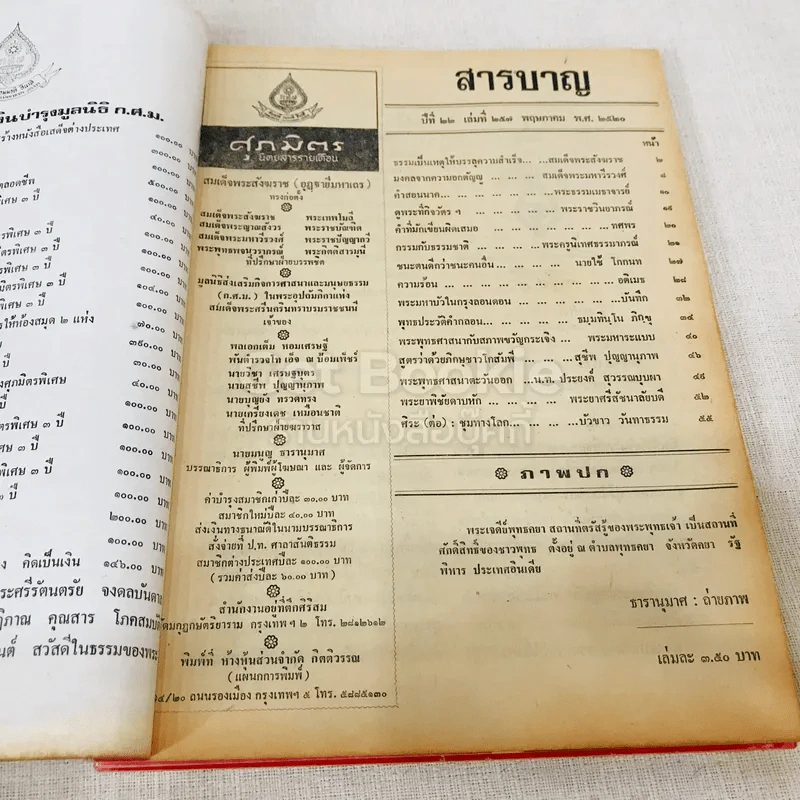 เงินบำรุงมูลนิธิ ก.ศ.ม.
ร้างหนังสือเสด็จต่างประเทศ
๑๐๐.๐๐ บาท
๓๐๐.๐๐ บาท
๑๐๐.๐๐ บาท
ตลอดชีพ
๕๐๐.๐๐ บาท
พิเศษ ๓ ปี
๑๐๐.๐๐ บาท
๔๐.๐๐ บาท
ตรพิเศษ ๓ ปี
๑๐๐.๐๐ บาท
พิเศษ ๓ ปี
๑๐๐.๐๐ บาท
มิตรพิเศษ ๓ ปี
๑๐๐.๐๐ บาท
พิเศษ ๓ ปี
๑๐๔.๐๐ บาท
ตรพิเศษ ๓ ปี
๑๐๐.๐๐ บาท
พิเศษ ๓ ปี
๑๐๐.๐๐ บาท
รให้ห้องสมุด ๒ แห่ง
๗๐.๐๐ บาท
๓๙๐.๐๐ บาท
ปี
๑๐๐.๐๐ บาท
ศุภมิตรพิเศษ
๔๐.๐๐ บาท
พิเศษ ๓ ปี
๑๐๐.๐๐ บาท
ตรพิเศษ ๓ ปี
๑๐๐.๐๐ บาท
พิเศษ ๓ ปี
๑๐๐.๐๐ บาท
๓ ปี
๑๐๐.๐๐ บาท
๒๐๐.๐๐ บาท
๑๐๐.๐๐ บาท
คิดเป็นเงิน ๑๔๖.๐๐ บาท
ระศรีรัตนตรัย จงดลบันดาล
ฏิภาณ คุณสาร โภคสมบัติ
นต์ สวัสดีในธรรมของพระ
ศุภมิตร
นิตยสารรายเดือน
สมเด็จพระสังฆราช (อุฏฐายีมหาเถร)
ทรงก่อตั้ง
สมเด็จพระสังฆราช พระเทพโมลี
สมเด็จพระญาณสังวร พระราชบัณฑิต
สมเด็จพระมหาวีรวงศ์ พระราชปัญญากวี
พระพุทธพจนวราภรณ์ พระกิตติสารมุนี
ที่ปรึกษาฝ่ายบรรพชิต
มูลนิธิส่งเสริมกิจการศาสนาและมนุษยธรรม
(ก.ศ.ม.) ในพระอุปถัมภ์กาแห่ง
สมเด็จพระศรีนครินทราบรมราชชนนี
เจ้าของ
พลเอกเต็ม หอมเศรษฐี
พันตำรวจโท เอ็จ ณ ป้อมเพ็ชร์
นายวิชา เศรษฐบุตร
นายสุชีพ ปุญญานุภาพ
นายบุญยง ทรวดทรง
นายเกรียงเดช เหมือนชาติ
ที่ปรึกษาฝ่ายฆราวาส
นายมนูญ ธารานุมาศ
บรรณาธิการ ผู้พิมพ์ผู้โฆษณา และ ผู้จัดการ
ค่าบำรุงสมาชิกเก่าปีละ ๓๐.๐๐ บาท
สมาชิกใหม่ปีละ ๔๐.๐๐ บาท
ส่งเงินทางธนาณัติในนามบรรณาธิการ
สั่งจ่ายที่ ป.ท. ศาลาสันติธรรม
สมาชิกต่างประเทศปีละ ๑๐๐.๐๐ บาท
(รวมค่าส่งปีละ ๖๐.๐๐ บาท)
สำนักงานอยู่ที่ตึกสิริสม
วัดมกุฏกษัตริยาราม กรุงเทพฯ ๒ โทร. ๒๘๑๒๖๑๒
พิมพ์ที่ ห้างหุ้นส่วนจำกัด กิตติวรรณ
(แผนกการพิมพ์)
๔/๒๐ ถนนรองเมือง กรุงเทพฯ ๕ โทร. ๕๘๘๕๑๓๐
สารบาญ
ปีที่ ๒๒ เล่มที่ ๒๕๗ พฤษภาคม พ.ศ. ๒๕๒๐
หน้า
ธรรมเป็นเหตุให้บรรลุความสำเร็จ... ...สมเด็จพระสังฆราช ๒
มงคลจากความอกตัญญู ... ... ...สมเด็จพระมหาวีรวงศ์ ๘
คำสอนนาค... ... ... ... ...พระธรรมเมธาจารย์ ๑๐
ดูพระที่กิจวัตร ฯ ... ... ... ...พระราชวินยาภรณ์ ๑๕
คำที่มักเขียนผิดเสมอ ... ... ... ... ...ทศพร ๑๘
กรรมกับธรรมชาติ ... ... ... ...พระครูนเทศธรรมาภรณ์ ๒๑
ชนะตนดีกว่าชนะคนอื่น ... ... ... นายใช้ โกกนท ๒๗
ความร้อน ... ... ... ... ... ...อดิเมธ ๒๘
พระมหาบัวในกรุงลอนดอน ... ... ... ... ...บันทึก ๓๒
พุทธประวัติคำกลอน... ... ... ... ธมฺมทินฺโน ภิกฺขุ ๓๔
พระพุทธศาสนากับสภาพขวัญกระเจิง ... พระมหาระแบบ ๔๐
สูตรว่าด้วยภิกษุชาวโกสัมพี... ... ...สุชีพ ปุญญานุภาพ ๔๖
พระพุทธศาสนาตะวันออก ...น.ท. ประยงค์ สุวรรณบุบผา ๔๙
พระยาพิชัยดาบหัก ... ... ... พระยาศรีสัชนาลัยบดี ๕๒
ศิระ (ต่อ) : ชุมทางโลก... ... ...บัวขาว วันทาธรรม ๕๕
ภาพปก
พระเจดีย์พุทธคยา สถานที่ตรัสรู้ของพระพุทธเจ้า เป็นสถานที่
ศักดิ์สิทธิ์ของชาวพุทธ ตั้งอยู่ ณ ตำบลพุทธคยา จังหวัดคยา รัฐ
พิหาร ประเทศอินเดีย
ธารานุมาศ : ถ่ายภาพ
เล่มละ ๓.๕๐ บาท
ร้านหนังสือบุ๊คที่